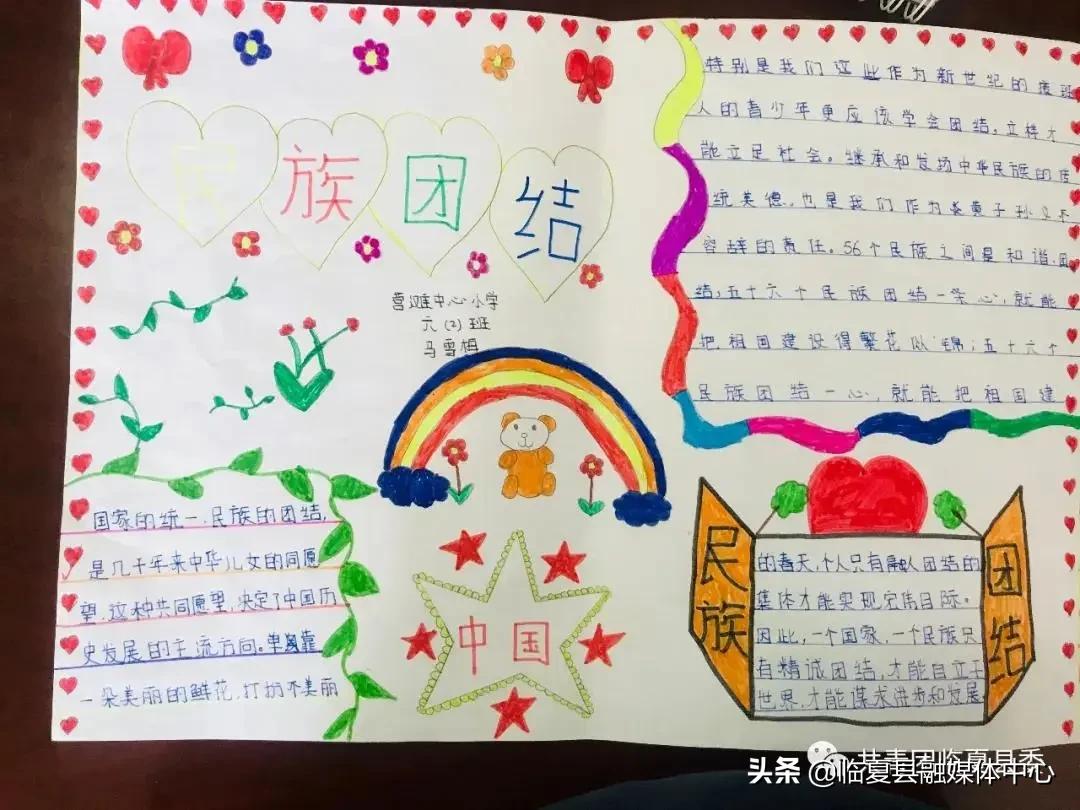 民族团结
营滩中心小学
六(2)班
马雪梅
国家的统一.民族的团结,
是几十年来中华儿女的同愿
望,这种共同愿望,决定了中国历
史发展的主流方向。单靠
一朵美丽的鲜花,打扮不美丽
中国
特别是我们这些作为新世纪的接班
人的青少年更应该学会团结。立样才
能立足社会。继承和发扬中华民族的传
统美德,也是我们作为炎黄子孙义不
容辞的责任。56个民族之间是和谐.团
结,五十六个民族团结一条心,就能
把祖国建设得繁花似锦;五十六个
民族团结一心,就能把祖国建
民族
团结
的春天,个人只有融入团结的
集体才能实现宏伟目际。
因此,一个国家,一个民族只
有精诚团结,才能自立于
世界,才能谋求进步和发展
共青团临夏县委
头条@临夏县融媒体中心